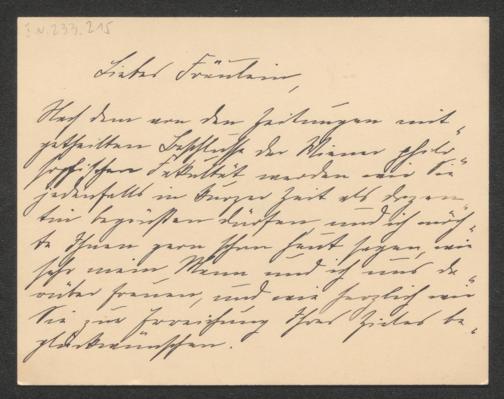 I.N. 233.215
Liebes Fräulein,
Nach dem von den Zeitungen mit-
getheilten Beschlusse der Wiener philo-
sophischen Fakultät werden wir Sie
jedenfalls in kurzer Zeit als Dozen-
tin begrüßen dürfen und ich möch-
te Ihnen gern schon heut sagen, wie
sehr mein Mann und ich uns da-
rüber freuen, und wie herzlich wir
Sie zur Erreichung Ihres Zieles be-
glückwünschen.